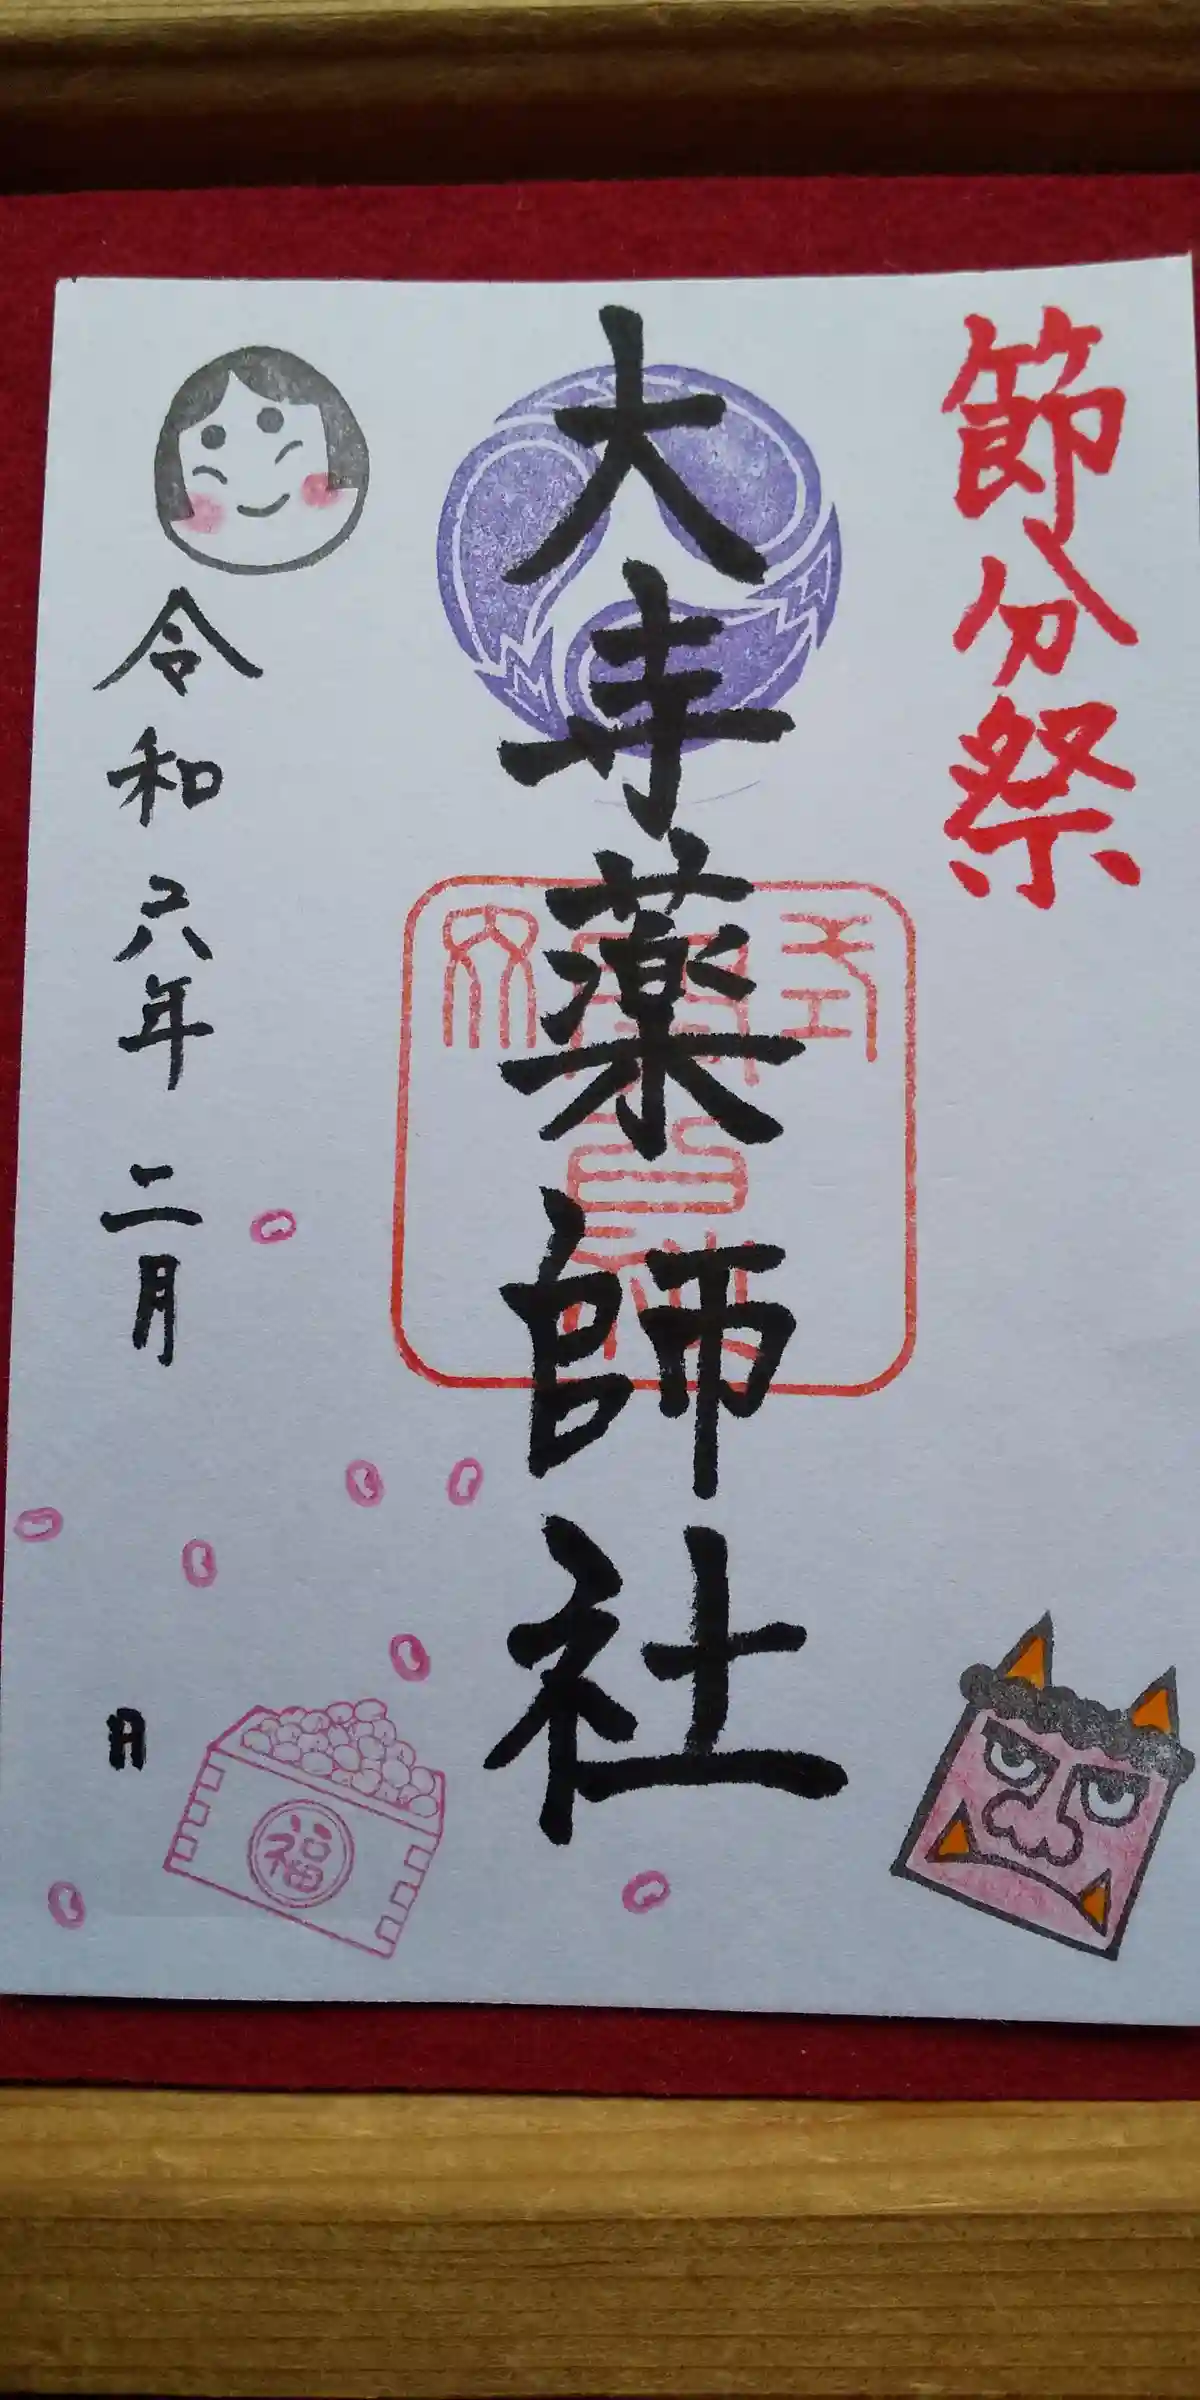 節分祭
大寺薬師社
令和六年 二月
日
福